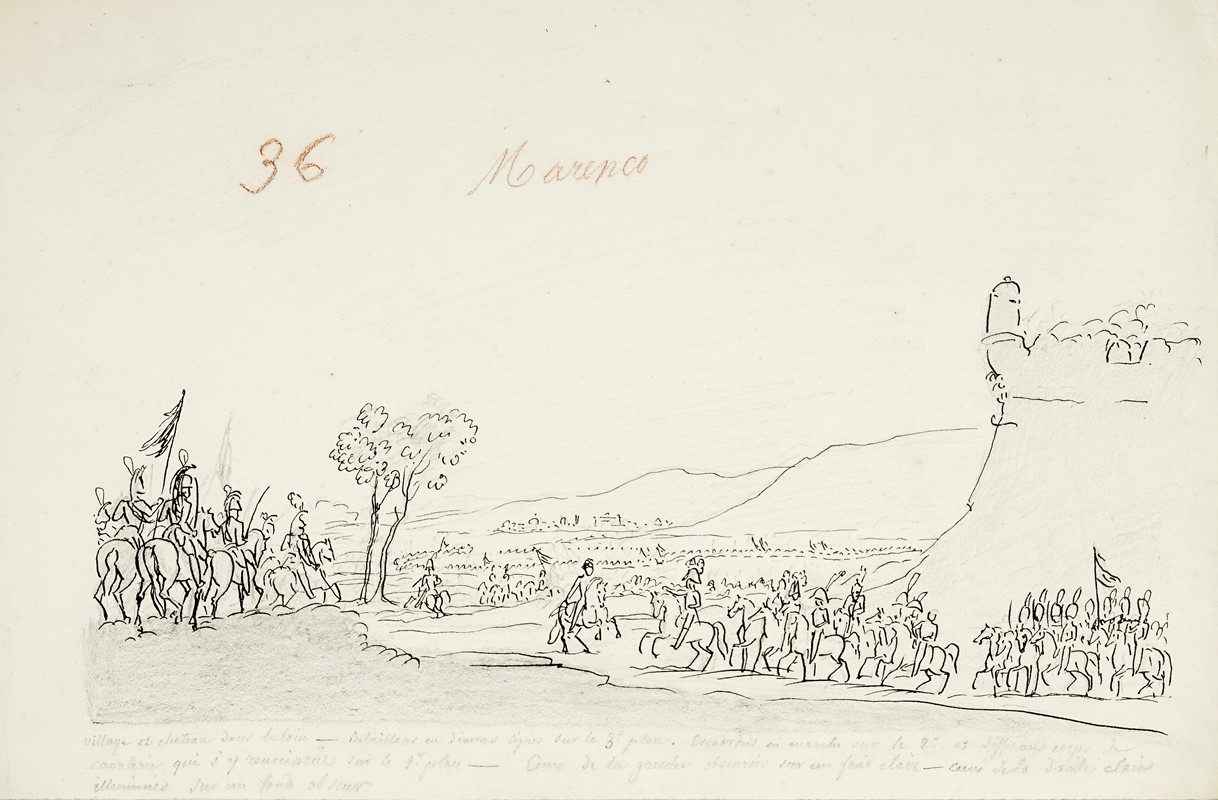 36 Marenco
village et chateau dans le loin — Bataillons en diverses lignes sur le 3e plan. Escadrons en marche sur le 2e. et differens corps de
cavalerie qui s'y reunissent sur le 1er plan — Ceux de la gauche obscurcis sur un fond clair — ceux de la droite clairs
illuminés sur un fond obscur